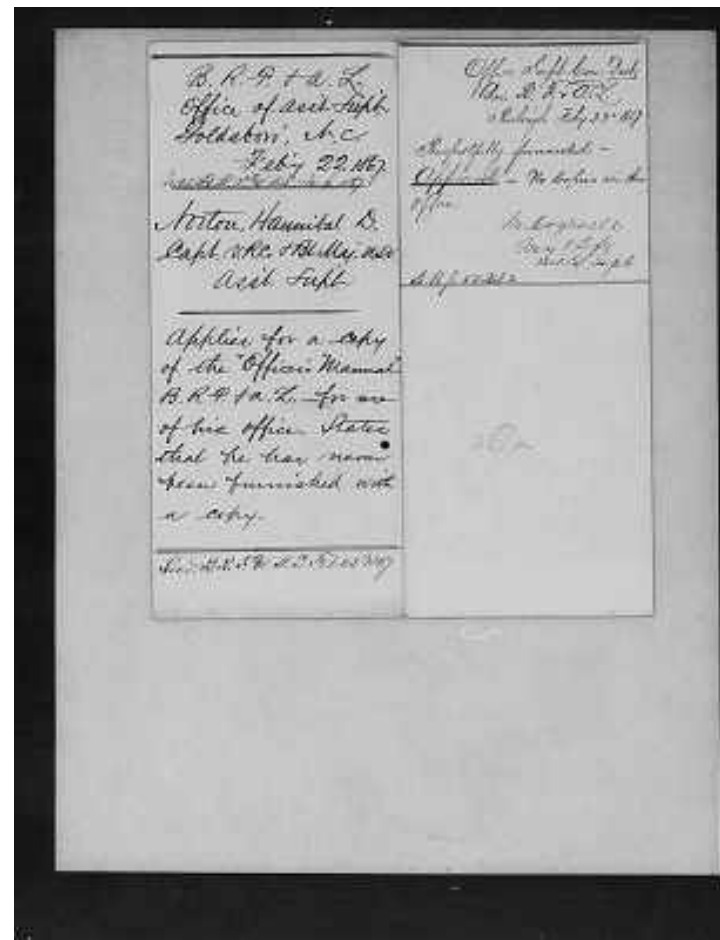 B. R. F & A. L.
Office of Asst Supt
Goldsboro, N.C
Feb'y 22. 1867.
Norton, Hannibal D.
Capt. V.R.C. & Bt Maj. USV
Asst Supt
Applies for a copy
of the "Officers Manual"
B. R. F & A. L. for use
of his office. States
that he has never
been furnished with
a copy.
Office Supt
Bu. R. F & A. L
Raleigh Feb'y 23rd 1867
Respectfully forwarded -
Approved - No copies in this
office.